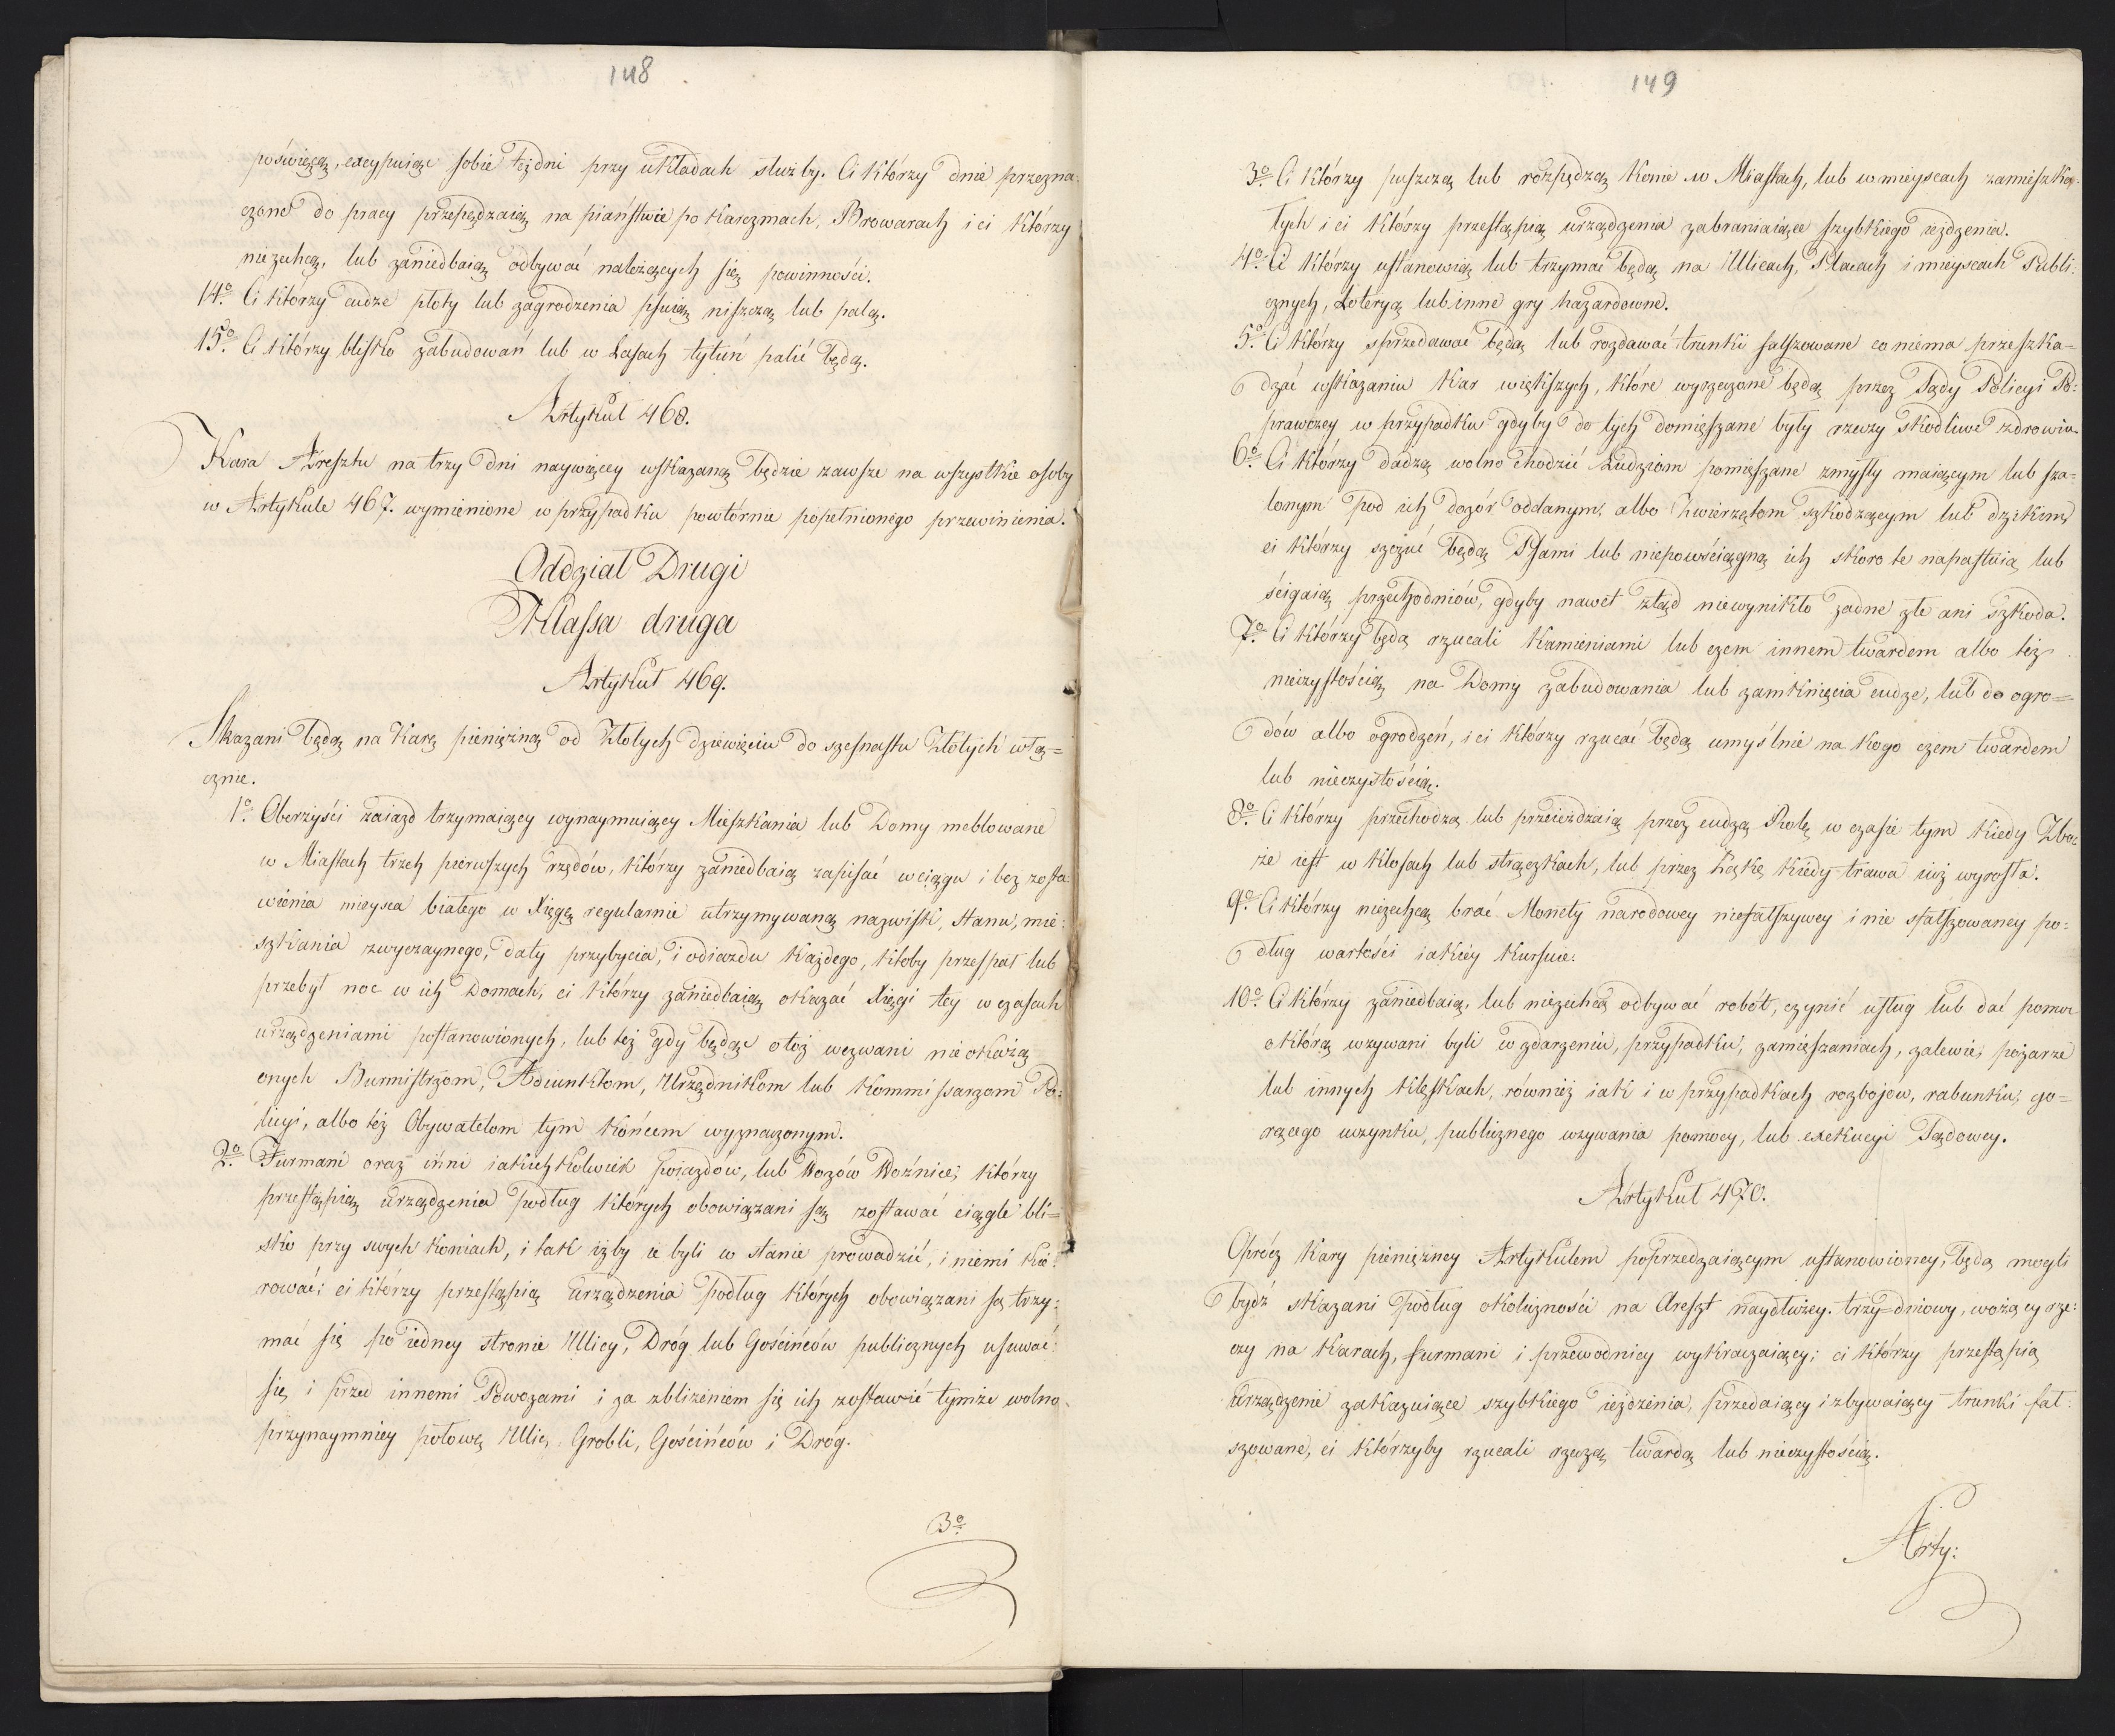 148
poświęcą, excypuiąc sobie też dni przy układach służby. Ci którzy dnie przezna
czone do pracy przepędzaią na piaństwie po karczmach, Browarach i ci którzy
niezechcą, lub zaniedbaią odbywać należących się powinności.
14º. Ci którzy cudze płoty lub zagrodzenia psuią niszczą lub palą.
15º. Ci którzy blisko zabudowań lub w Lasach tytuń palić będą.
Artykuł 468.
Kara Aresztu na trzy dni naywięcey wskazaną będzie zawsze na wszystkie osoby
w Artykule 467. wymienione w przypadku powtórnie popełnionego przewinienia.
Oddział Drugi
Klassa druga
Artykuł 469.
Skazani będą na karę pieniężną od Złotych dziewięciu do szesnastu Złotych włą=
cznie.
1º. Oberżyści zaiazd trzymaiący wynaymuiący Mieszkania lub Domy meblowane
w Miastach trzech pierwszych rzędów, którzy zaniedbaią zapisać w ciągu i bez zosta
wienia mieysca białego w Xięgę regularnie utrzymywaną nazwisk, Stanu, mie:
szkania zwyczaynego, daty przybycia, i odiazdu każdego, ktoby przespał lub
przebył noc w ich Domach, ci którzy zaniedbaią okazać Xięgi tey w czasach
urządzeniami postanowionych, lub też gdy będąc o toż wezwani nie okażą
onych Burmistrzom, Adiunktom, Urzędnikom lub Kommissarzom Po:
licyi, albo też Obywatelom tym końcem wyznaczonym.
2º. Furmani oraz inni iakichkolwiek poiazdów, lub Wozów Woźnice, którzy
przestąpią urządzenia podług których obowiązani są zostawać ciągle bli=
sko przy swych koniach, i tak iżby ie byli w stanie prowadzić, i niemi kie:
rować; ci którzy przestąpią urządzenia podług których obowiązani są trzy:
mać się po iedney stronie Ulicy, Dróg lub Gościńców publicznych usuwać
się i przed innemi Powozami i za zbliżeniem się ich zostawić tymże wolną
przynaymniey połowę Ulic, Grobli, Gościńców i Dróg.
3º.
149
3º. Ci którzy puszczą lub rozpędzą konie w Miastach, lub w mieyscach zamieszka-
łych i ci którzy przestąpią urządzenia zabraniaiące szybkiego ieżdzenia.
4º. Ci którzy ustanowią lub trzymać będą na Ulicach, Placach i mieyscach Publi:
cznych, Loteryą lub inne gry hazardowne.
5º. Ci którzy sprzedawać będą lub rozdawać trunki fałszowane co niema przeszka=
dzać wskazaniu kar większych, które wyrzeczone będą przez Sądy Policyi Po:
prawczey w przypadku gdyby do tych domięszane były rzeczy szkodliwe zdrowiu.
6º. Ci którzy dadzą wolno chodzić Ludziom pomięszane zmysły maiącym lub sza=
lonym pod ich dozór oddanym, albo Zwierzętom szkodzącym lub dzikim,
ci którzy szczuć będą Psami lub niepowściągną ich skoro te napastuią lub
ścigaią przechodniów, gdyby nawet ztąd niewynikło żadne złe ani szkoda.
7º. Ci którzy będą rzucali kamieniami lub czem innem twardem albo też
nieczystością na Domy zabudowania lub zamknięcia cudze, lub do ogro=
dów albo ogrodzeń, i ci którzy rzucać będą umyślnie na kogo czem twardem
lub nieczystością.
8º. Ci którzy przechodzą lub przeieżdżaią przez cudzą Rolę w czasie tym kiedy Zbo:
że iest w kłosach lub strączkach, lub przez Łąkę kiedy trawa iuż wyrosła.
9º. Ci którzy niezechcą brać Monety narodowey niefałszywey i nie sfałszowaney po=
dług wartości iakiéy kursuie.
10º. Ci którzy zaniedbaią, lub niezechcą odbywać robót, czynić usług lub dać pomoc
o którą wzywani byli w zdarzeniu, przypadku, zamięszaniach, zalewie, pożarze
lub innych klęskach, również iak i w przypadkach rozbojów, rabunku, go=
rącego uczynku, publicznego wzywania pomocy, lub exekucyi Sądowey.
Artykuł 470.
Oprócz kary pieniężney Artykułem poprzedzaiącym ustanowioney, będą mogli
bydź skazani podług okoliczności na Areszt naydłużey trzy=dniowy, wożący rze:
czy na karach, furmani i przewodnicy wykraczaiący; ci którzy przestąpią
Urządzenie zakazuiące szybkiego ieżdżenia, przedaiący i zbywaiący trunki fał:
szowane, ci którzyby rzucali rzeczą twardą lub nieczystością.
Arty: